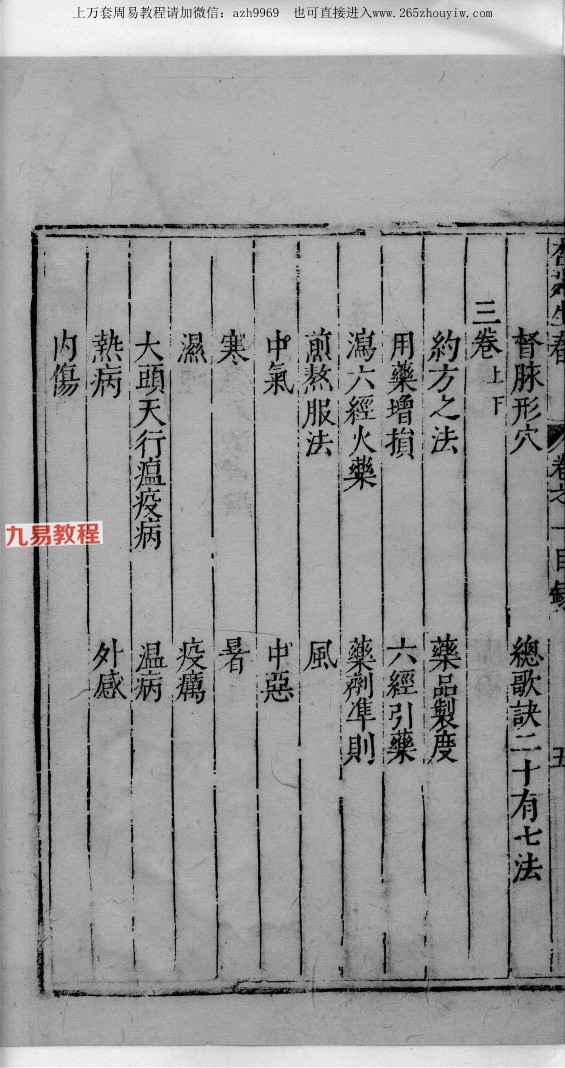 上万套周易教程请加微信：azh9969　也可直接进入www.265zhouyiw.com
卷之一目錄
五
督脉形穴　總歌訣二十有七法
三卷上下
約方之法　藥品製度
用藥增損　六經引藥
瀉六經火藥　藥劑準則
煎熬服法　風
中氣　中惡
寒　暑
濕　疫癘
大頭天行瘟疫病　温病
熱病　外感
内傷
九易教程